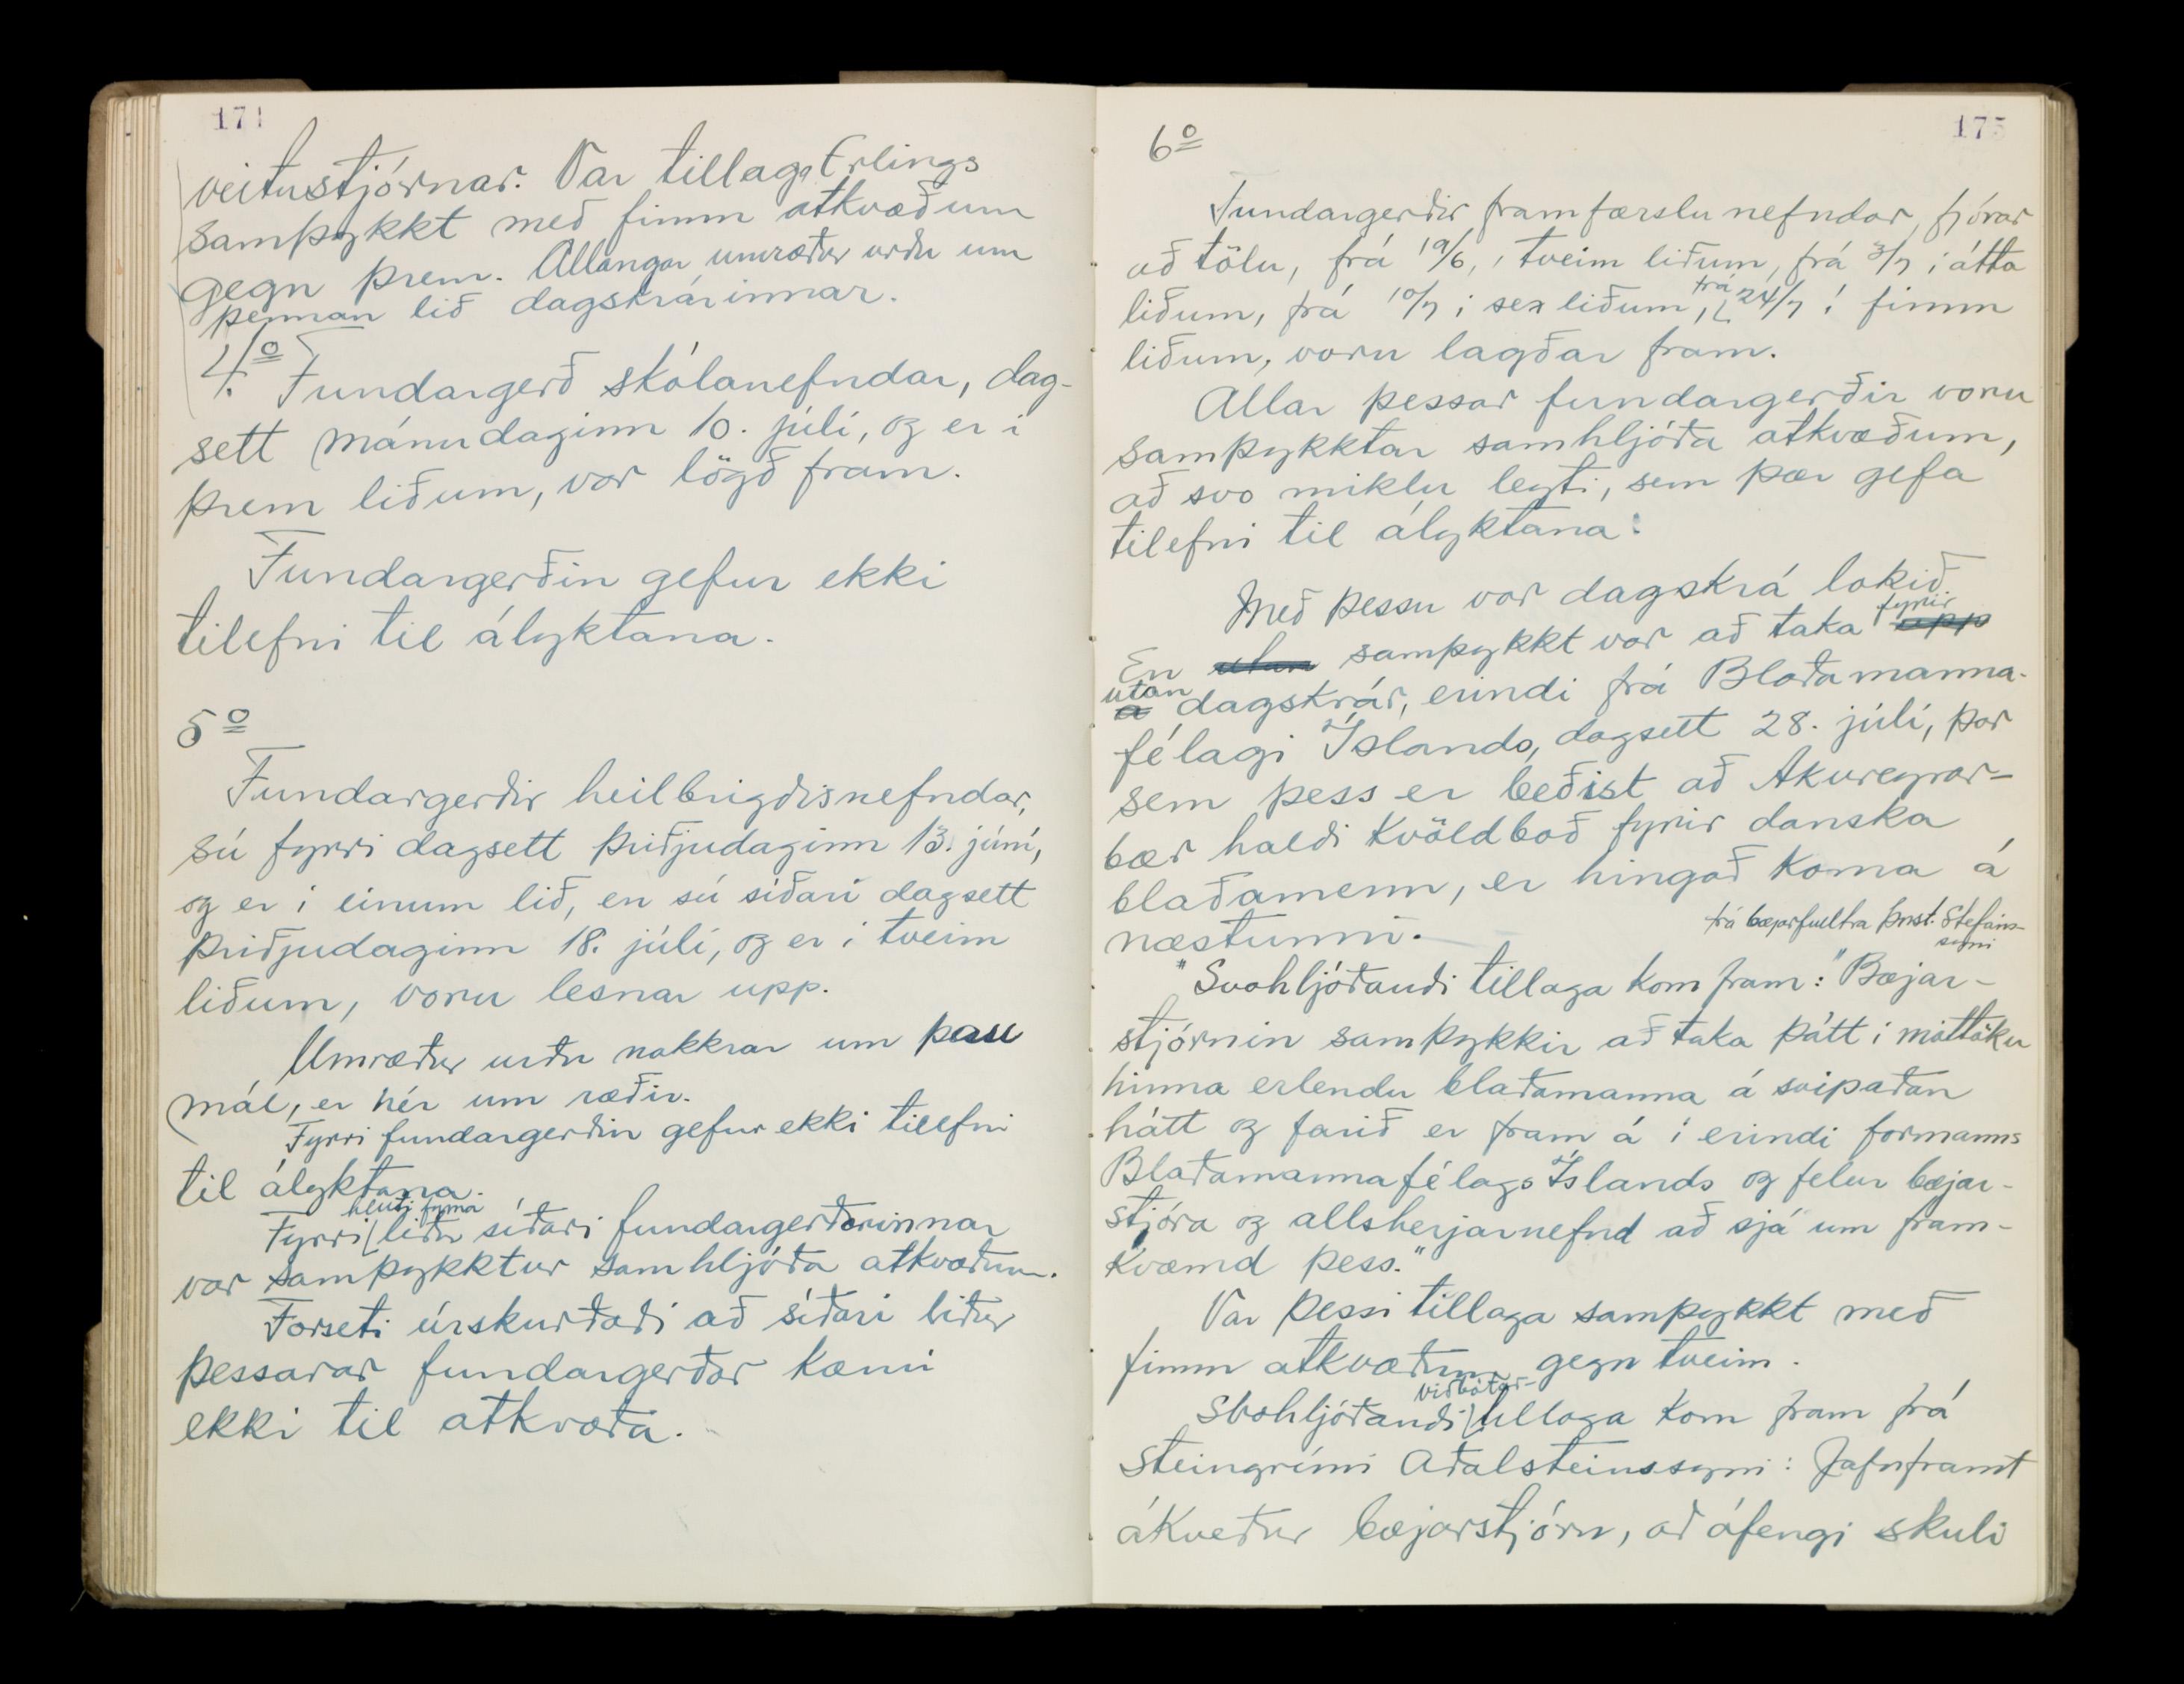 174
veitustjórnar. Var tillaga Erlings
samþykkt með fimm atkvæðum
gegn þrem. Allangar umræður urðu um
þennan lið dagskrárinnar.
4.o
Fundargerð skólanefndar, dag-
sett mánudaginn 10. júlí, og er í
þrem liðum, var lögð fram.
Fundargerðin gefur ekki
tilefni til ályktana.
5o
Fundargerðir heilbrigðisnefndar,
sú fyrri dagsett þriðjudaginn 13. júní,
og er í einum lið, en sú síðari dagsett
þriðjudaginn 18. júlí, og er í tveim
liðum, voru lesnar upp.
Umræður urðu nokkrar um þau
mál, er hér um ræðir.
Fyrri fundargerðin gefur ekki tilefni
til ályktana.
hluti fyrra
Fyrri liðu síðari fundargerðarinnar
var samþykktur samhljóða atkvæðum.
Forseti úrskurðaði að síðari liður
þessarar fundargerðar kæmi
ekki til atkvæða.
175
6o
Fundargerðir framfærslunefndar, fjórar
að tölu, frá 19/6, í tveim liðum, frá 3/7 í átta
liðum, frá 10/7 í sex liðum, frá 24/7 í fimm
liðum, voru lagðar fram.
Allar þessar fundargerðir voru
samþykktar samhljóða atkvæðum,
að svo miklu leyti, sem þær gefa
tilefni til ályktana.
Með þessu var dagskrá lokið
En utan samþykkt var að taka fyrir upp
utan á dagskrár, erindi frá Blaðamanna-
félagi Íslands, dagsett 28. júlí, þar
sem þess er beðist að Akureyrar-
bær haldi kvöldboð fyrir danska
blaðamenn, er hingað koma á
næstunni.
frá bæjarfulltra Þorst. Stefáns-
syni
"Svohljóðandi tillaga kom fram: "Bæjar-
stjórnin samþykkir að taka þátt í móttöku
hinna erlendu blaðamanna á svipaðan
hátt og farið er fram á í erindi formanns
Blaðamannafélags Íslands og felur bæjar-
stjóra og allsherjarnefnd að sjá um fram-
kvæmd þess."
Var þessi tillaga samþykkt með
fimm atkvæðum gegn tveim.
Svohljóðandi viðbótar- tillaga kom fram frá
Steingrími Aðalsteinssyni: Jafnframt
ákveður bæjarstjórn, að áfengi skuli